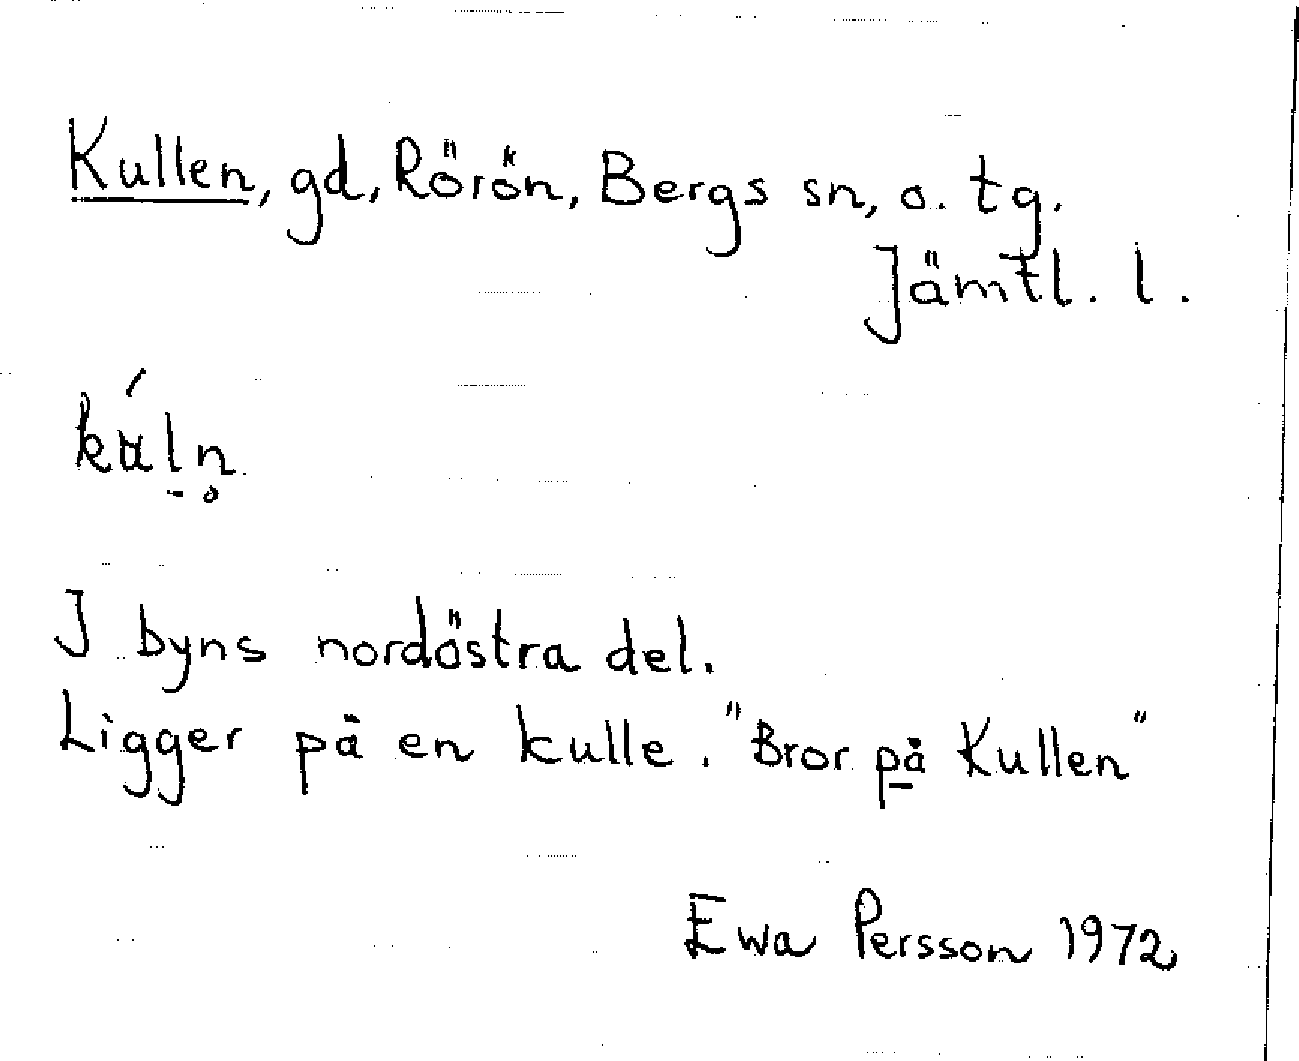 Kullen, gd, Rörön, Bergs sn, o. tg.
Jämtl. l.
I byns nordöstra del.
Ligger på en kulle. "Bror på Kullen"
Ewa Persson 1972